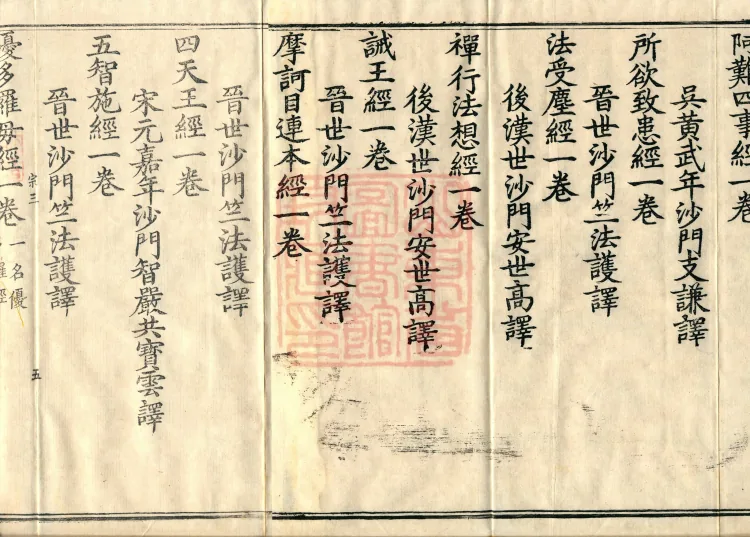 阿難四事經一卷
吳黃武年沙門支謙譯
所欲致患經一卷
晉世沙門竺法護譯
法受塵經一卷
後漢世沙門安世高譯
禪行法想經一卷
後漢世沙門安世髙譯
誡王經一卷
晉世沙門竺法護譯
摩訶目連本經一卷
晉世沙門竺法護譯
四天王經一卷
宋元嘉年沙門智嚴共寶雲譯
五智施經一卷
晉世沙門竺法護譯
宗三
五
憂多羅毋經一卷
一名優
羅經